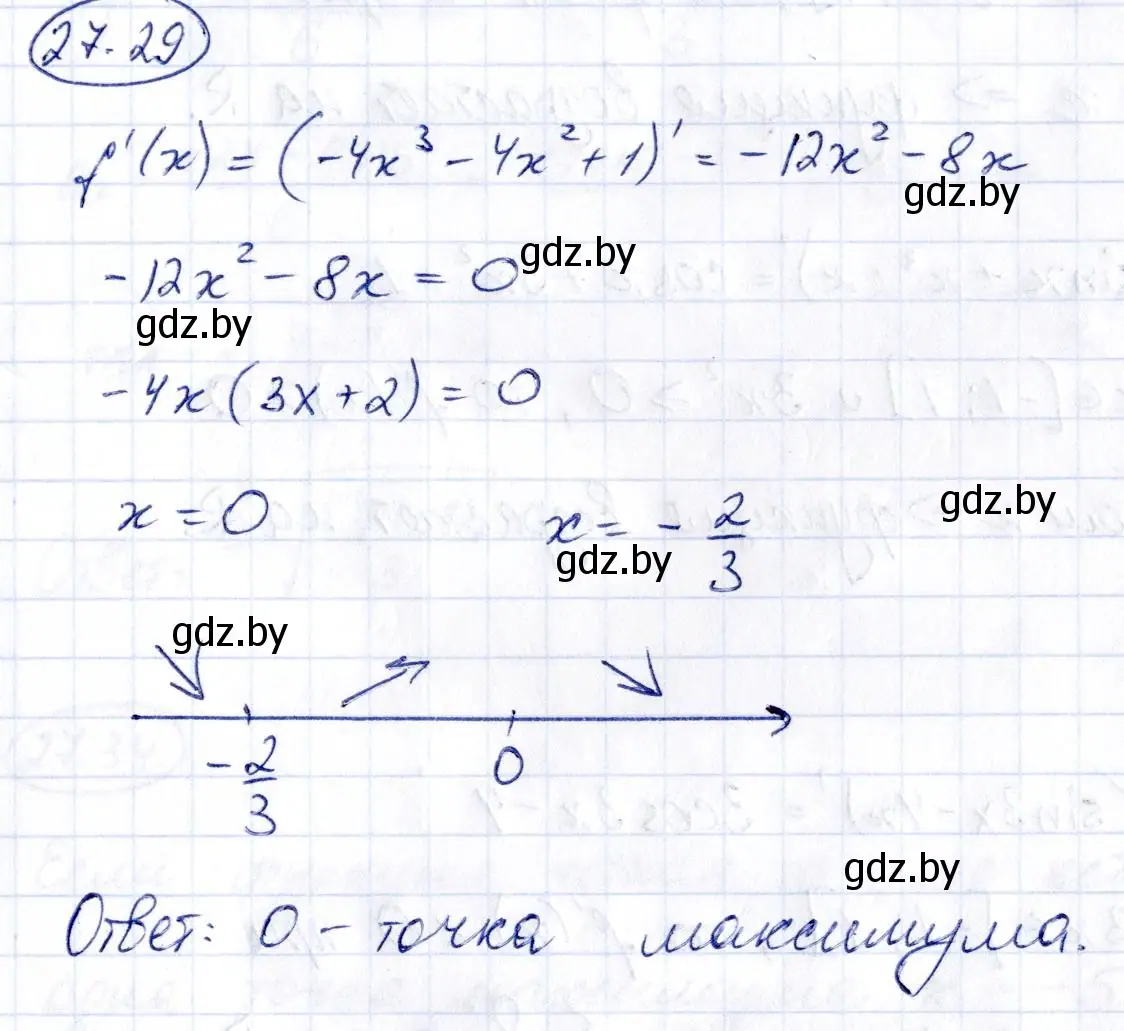 27.29
f'(x) = (-4x³ - 4x² + 1)' = -12x² - 8x
gdz.by
-12x² - 8x = 0
gdz.by
gdz.by
-4x(3x+2) = 0
x = 0 x = -2/3
gdz.by
gdz.by
gdz.by
-2/3 0
gdz.by
Ответ: 0 - точка максимума.